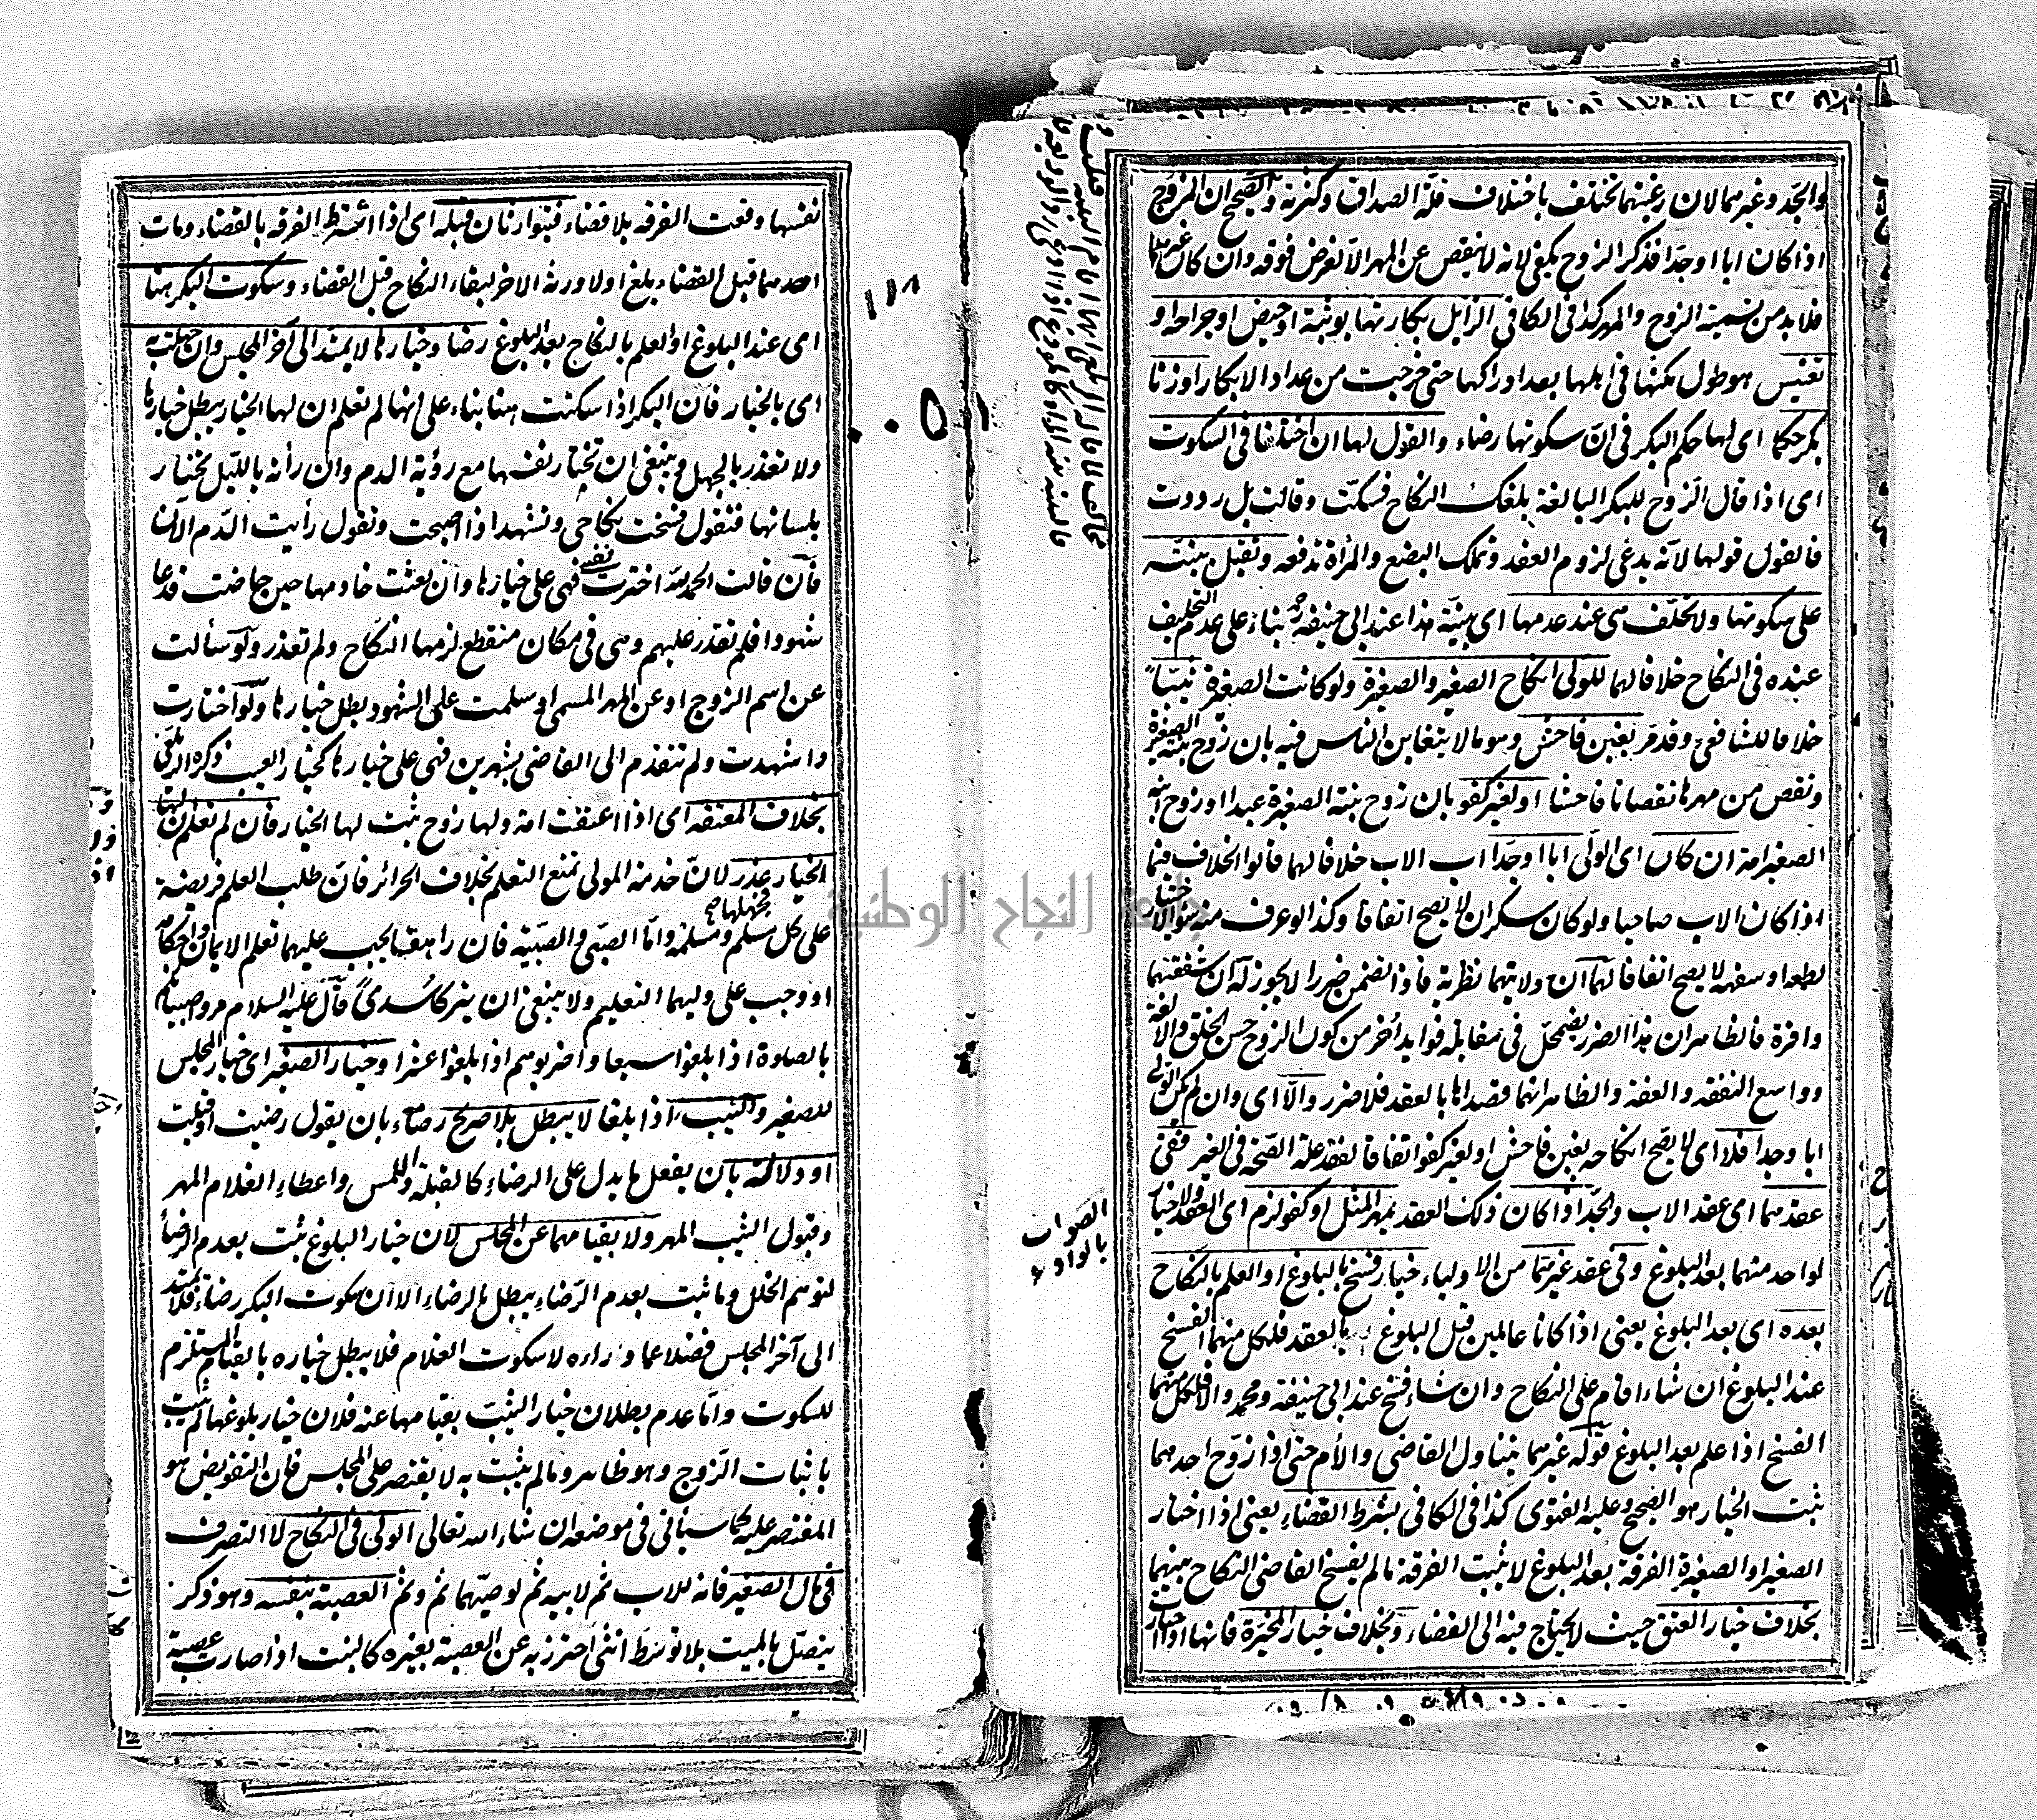 والجد وغيرهما لان رغبتهما تختلف باختلاف قلة الصداق وكثرته والصحيح ان المزوج
اذا كان ابا او جدا فذكر الزوج يكفي لانه لا ينقص عن المهر الا لغرض فوقه وان كان غيرهما
فلا بد من تسمية الزوج والمهر كذا في الكافي الزايل بكارتها بوثبة او حيض او جراحة او
تعنيس هو طول مكثها في اهلها بعد ادراكها حتى خرجت من عداد الابكار او زنا
بكر حكما اي لها حكم البكر في ان سكوتها رضاء والقول لها ان اختلفا في السكوت
اي اذا قال الزوج للبكر البالغة بلغك النكاح فسكت وقالت بل رددت
فالقول قولها لانه يدعي لزوم العقد وتملك البضع والمرأة تدفعه وتقبل بينته
على سكوتها ولا تحلف هي عند عدمها اي بينة هذا عند ابي حنيفة بناء على عدم التحليف
عنده في النكاح خلافا لهما للولي انكاح الصغير والصغيرة ولو كانت الصغيرة ثيبا
خلافا للشافعي وقد مر بغبن فاحش وهو مالا يتغابن الناس فيه بان زوج بنته الصغيرة
ونقص من مهرها نقصانا فاحشا او لغير كفو بان زوج بنته الصغيرة عبدا او زوج ابنه
الصغير امة ان كان اي الولي ابا او جدا اب الاب خلافا لهما قالوا الخلاف فيما
اذا كان الاب صاحيا ولو كان سكران لا يصح اتفاقا وكذا لو عرف منه سوء الاختيار
لطمعه او سفهه لا يصح اتفاقا لهما ان ولايتهما نظرية فاذا تضمن ضررا لا يجوز له ان شفقتهما
وافرة فالظاهر ان هذا الضرر يضمحل في مقابلة فوايد اخر من كون الزوج حسن الخلق والالفة
وواسع النفقه والعفة والظاهر انهما قصداها بالعقد فلا ضرر والا اي وان لم يكن الولي
ابا وجدا فلا اي لا يصح انكاحه بغبن فاحش او لغير كفو اتفاقا لفقد علة الصحة في الغير ففي
عقدهما اي عقد الاب والجد اذا كان ذلك العقد بمهر المثل او كفو لزم اي العقد ولا خيار
لواحد منهما بعد البلوغ وفي عقد غيرهما من الاولياء خيار فسخ بالبلوغ او العلم بالنكاح
بعده اي بعد البلوغ يعني اذا كانا عالمين قبل البلوغ بالعقد فلكل منهما الفسخ
عند البلوغ ان شاء اقام على النكاح وان شاء فسخ عند ابي حنيفة ومحمد والا فلكل منهما
الفسخ اذا علم بعد البلوغ قوله غيرهما يتناول القاضي والام حتى اذا زوج احدهما
ثبت الخيار هو الصحيح وعليه الفتوى كذا في الكافي بشرط القضاء يعني اذا اختار
الصغير او الصغيرة الفرقة بعد البلوغ لا يثبت الفرقة ما لم يفسخ القاضي النكاح بينهما
بخلاف خيار العتق حيث لا يحتاج فيه الى القضاء وبخلاف خيار المخيرة فانها اذا اختارت
الصواب
بالواو
نفسها وقعت الفرقه بلا قضاء فيتوارثان قبله اي اذا اشترط الفرقه بالقضاء ومات
احدهما قبل القضاء بلغ او لا ورثه الاخر لبقاء النكاح قبل القضاء وسكوت البكر هنا
اي عند البلوغ او العلم بالنكاح بعد البلوغ رضا وخيارها لا يمتد الى آخر المجلس وان جهلت به
اي بالخيار فان البكر اذا سكتت هنا بناء على انها لم تعلم ان لها الخيار يبطل خيارها
ولا تعذر بالجهل وينبغي ان تختار نفسها مع رؤية الدم وان رأته بالليل تختار
بلسانها فتقول فسخت نكاحي وتشهد اذا اصبحت وتقول رأيت الدم الآن
فان قالت الحمد لله اخترت نفسي فهي على خيارها وان بعثت خادمها حين حاضت فدعا
شهودا فلم تقدر عليهم وهي في مكان منقطع لزمها النكاح ولم تعذر ولو سألت
عن اسم الزوج او عن المهر المسمى او سلمت على الشهود بطل خيارها ولو اختارت
واشهدت ولم تتقدم الى القاضي بشهرين فهي على خيارها كخيار العيب ذكره الزيلعي
بخلاف المعتقه اي اذا اعتقت امة ولها زوج ثبت لها الخيار فان لم تعلم ان لها
الخيار عذر لان خدمة المولى تمنع التعلم بخلاف الحرائر فان طلب العلم فريضة
على كل مسلم ومسلمة واما الصبي والصبية فان راهقا يجب عليهما تعلم الايمان واحكامه
او وجب على وليهما التعليم ولا ينبغي ان يتركا سدى قال عليه السلام مروا صبيانكم
بالصلوة اذا بلغوا سبعا واضربوهم اذا بلغوا عشرا وخيار الصغير اي خيار المجلس
للصغير والثيب اذا بلغا لا يبطل بلا صريح رضاء بان يقول رضيت او قبلت
او دلالته بان يفعل ما يدل على الرضاء كالقبلة واللمس واعطاء الغلام المهر
وقبول الثيب المهر ولا بقيامهما عن المجلس لان خيار البلوغ ثبت بعدم الرضا
لتوهم الخلل وما ثبت بعدم الرضاء يبطل بالرضاء الا ان سكوت البكر رضاء فلا يمتد
الى آخر المجلس فضلا عما وراءه لا سكوت الغلام فلا يبطل خياره بالقيام المستلزم
للسكوت واما عدم بطلان خيار الثيب بقيامها عنه فلان خيار بلوغها لم يثبت
باثبات الزوج وهو ظاهر وما لم يثبت به لا يقتصر على المجلس فان التفويض هو
المقتصر عليه كما سيأتي في موضعه ان شاء الله تعالى الولي في النكاح لا التصرف
في مال الصغير فانه للاب ثم لابيه ثم لوصيهما ثم وثم العصبة بنفسه وهو ذكر
يتصل بالميت بلا توسط انثى احترز به عن العصبة بغيره كالبنت اذا صارت عصبة
١١٨
جامعة النجاح الوطنية